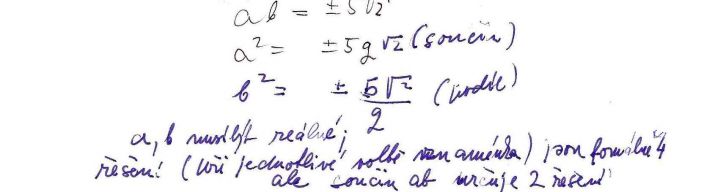 ab = ±5√2
a² = ±5g√2 (součin)
b² = ± 5√2/2 (podíl)
a, b musí být reálné;
řešení (při jednotlivé volbě znaménka) jsou formálně 4
ale součin ab určuje 2 řešení